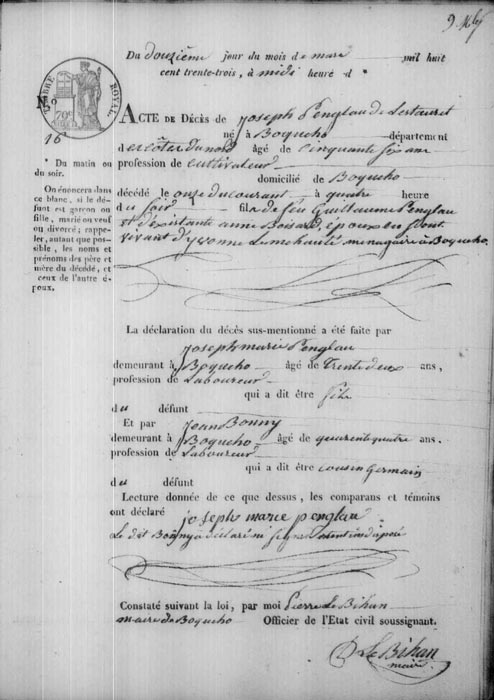 9. 
Du douzième jour du mois de mars mil huit
cent trente-trois, à midi heure d *
TIMBRE ROYAL
70c
N.º
16
ACTE DE DÉCÈS de Joseph Penglau de Lestauret
né à Boqueho département
des Côtes du nord âgé de Cinquante six ans
profession de Cultivateur
domicilié de Boqueho
décédé le onze du courant à quatre heure
du soir fils de feu Guillaume Penglau
et d'existante anne Boisard, époux en
vivant d'yvonne Lemehauté menagère à Boqueho.
* Du matin ou
du soir.
On énoncera dans
ce blanc, si le dé-
funt est garçon ou
fille, marié ou veuf
ou divorcé; rappe-
ler, autant que pos-
sible, les noms et
prénoms des père et
mère du décédé, et
ceux de l'autre é-
poux.
La déclaration du décès sus-mentionné a été faite par
Joseph marie Penglau
demeurant à Boqueho âgé de Trente deux ans,
profession de Laboureur
qui a dit être fils
du défunt
Et par Jean Bonny
demeurant à Boqueho âgé de quarente quatre ans.
profession de Laboureur
qui a dit être cousin Germain
du défunt
Lecture donnée de ce que dessus, les comparans et témoins
ont déclaré
joseph marie penglau
Le dit Bonny a déclaré ni signer
Constaté suivant la loi, par moi Pierre Le Bihan
maire de Boqueho Officier de l'Etat civil soussignant.
P. Le Bihan
maire